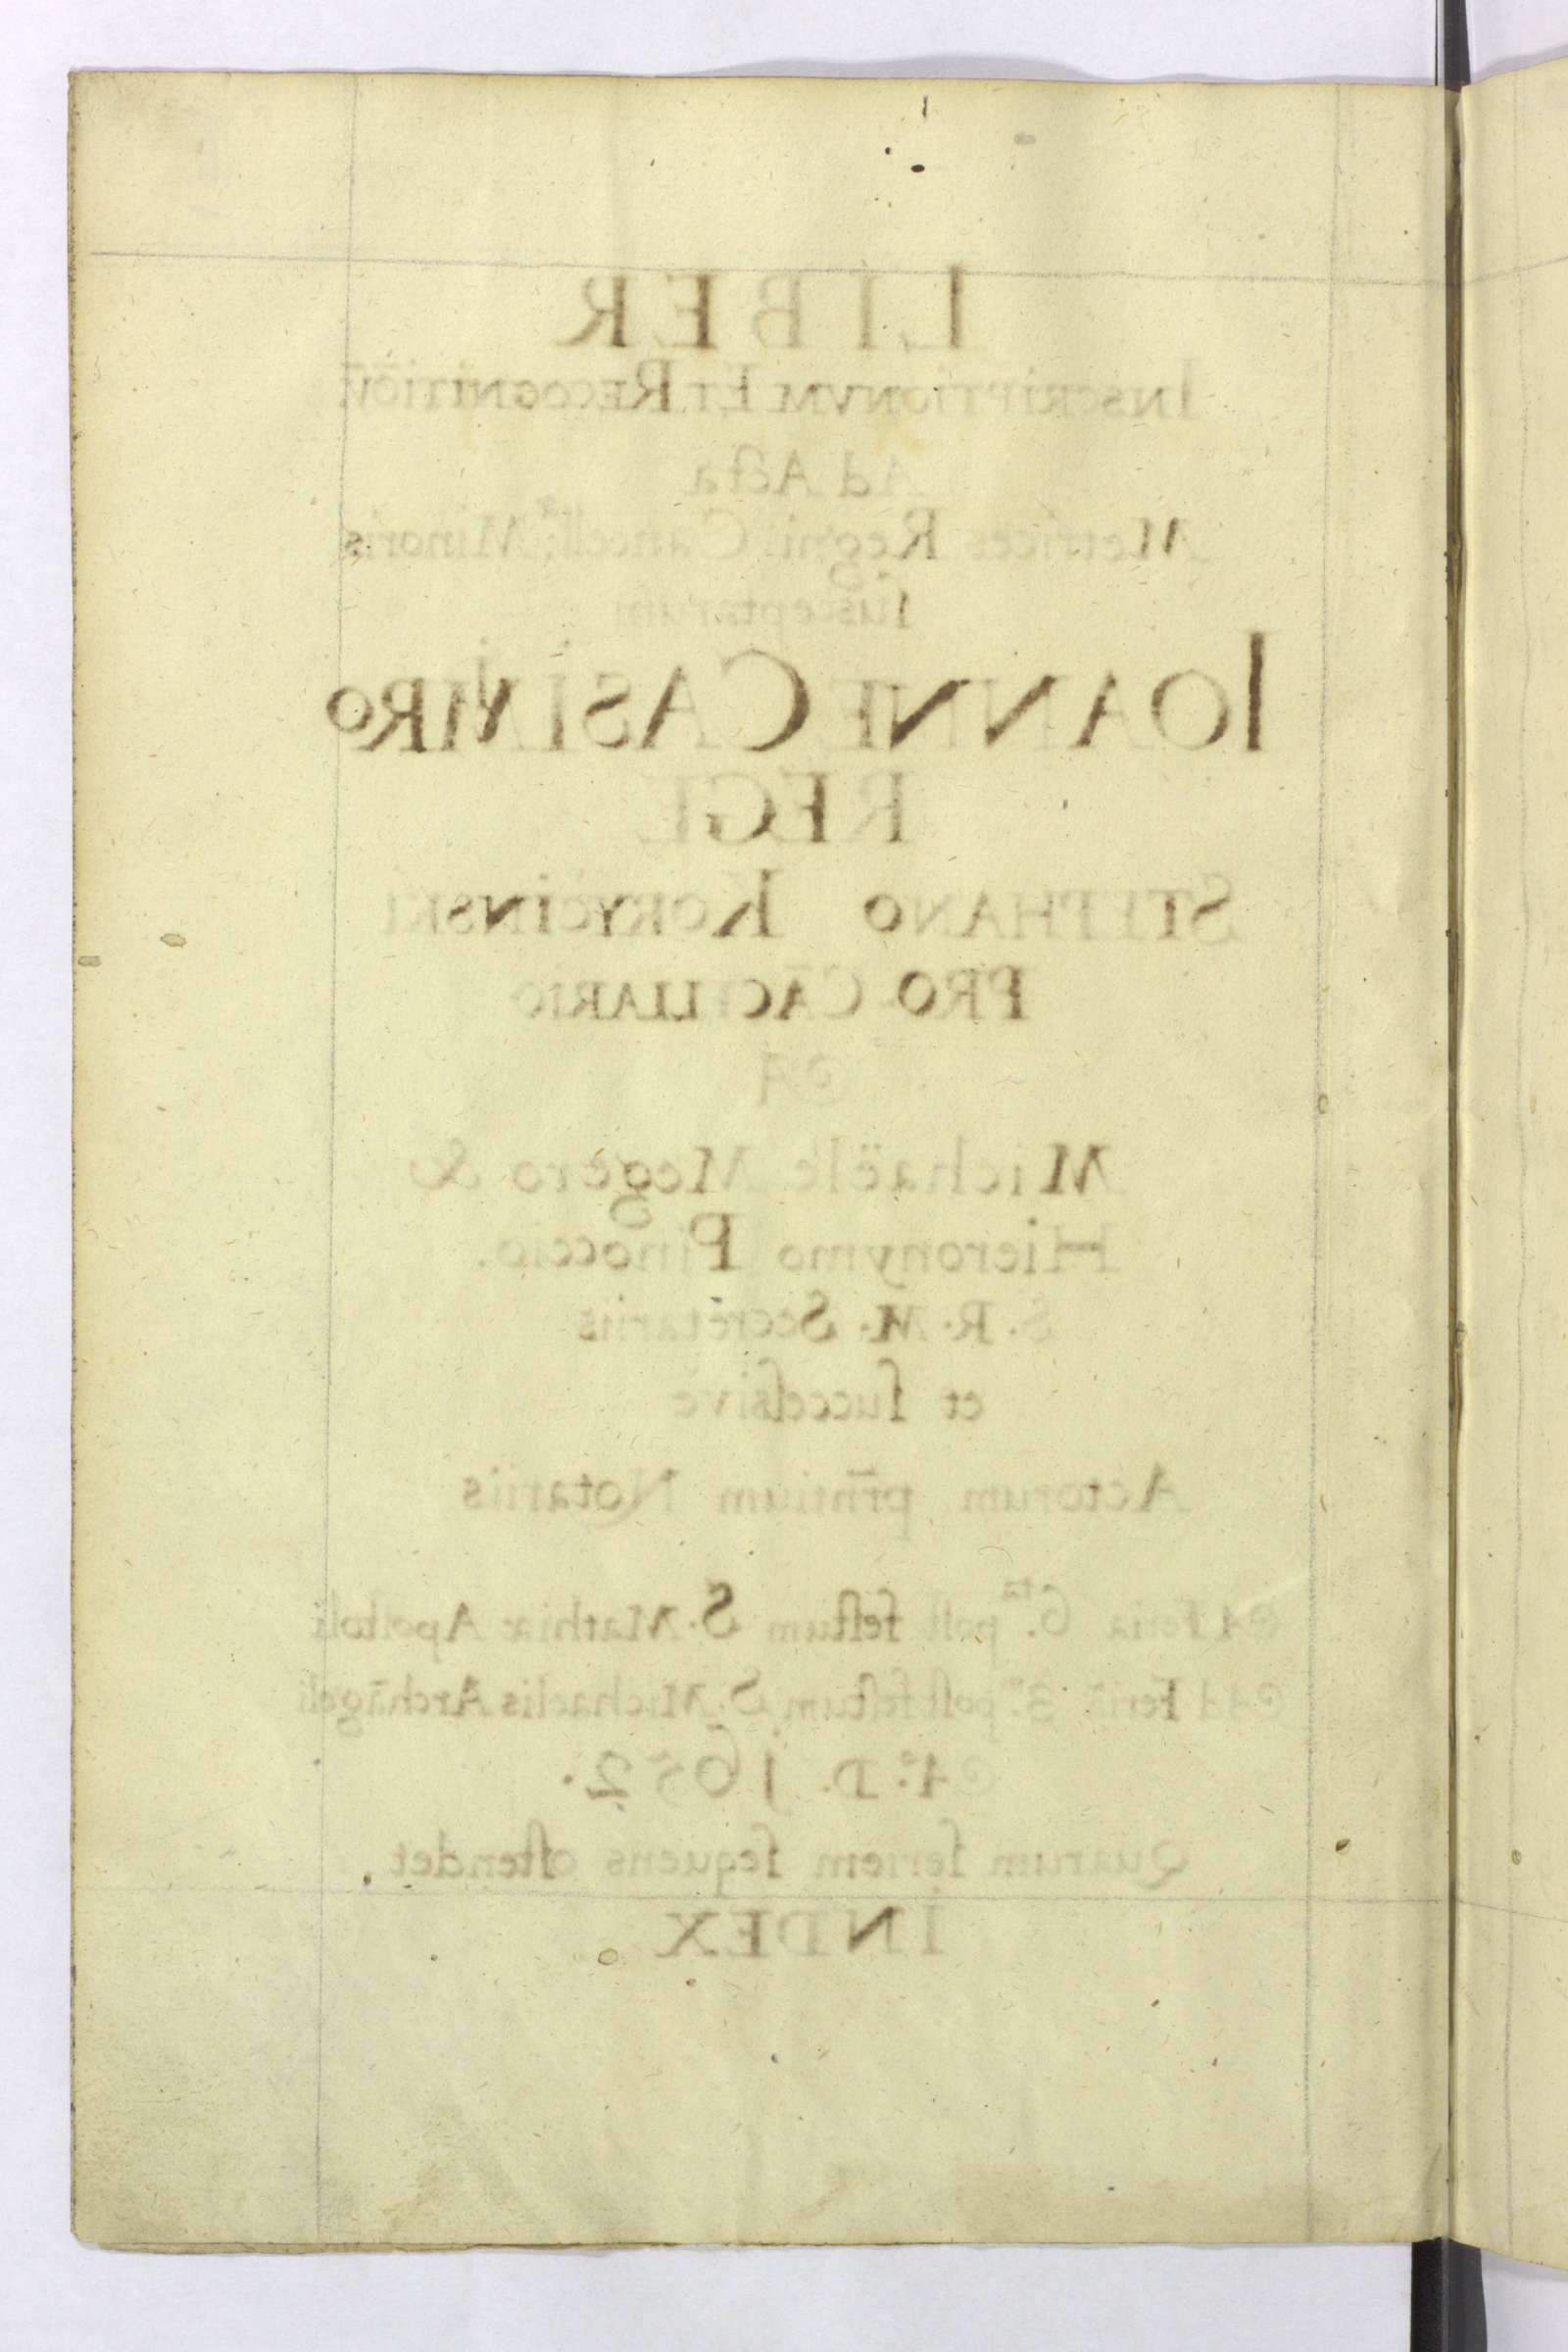 LIBER
INSCRIPTIONVM ET RECOGNITIŌV̄
Ad Acta
Metrices Regni Cancell: Minoris
susceptarum
IOANNE CASIMIRO
REGE
STEPHANO KORYCINSKI
PRO-CĀCLLARIO
Michaële Megero &
Hieronymo Pinoccio.
S. R. M. Secretariis
et successive
Actorum pr̄ntium Notariis
A Feria 6.ta post festum S. Mathiæ Apostoli
Ad Feriā 3.m post festum S. Michaelis Archāgeli
A.o D. 1652.
Quarum seriem sequens ostendet.
INDEX